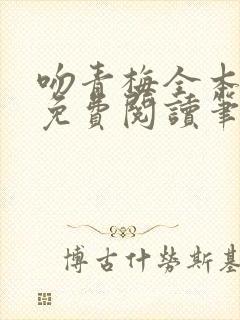 吻青梅全本
免費閱讀筆
博古什勞斯基